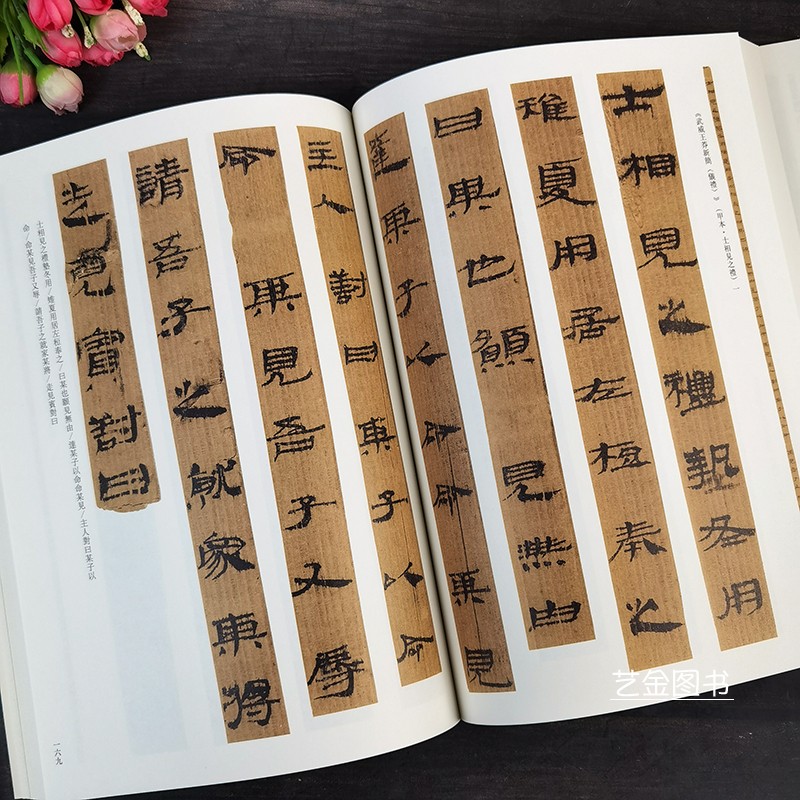 《武威王莽新簡〈儀禮〉》（甲本·士相見之禮）一
士相見之禮摯冬用
雉夏用居左桓奉之
曰某也願見無由
達某子以命命某見
主人對曰某子以命
命某見吾子又辱
請吾子之就家某將
走見賓對曰
士相見之禮摯冬用/雉夏用居左桓奉之/曰某也願見無由/達某子以命命某見/主人對曰某子以
命/命某見吾子又辱/請吾子之就家某將/走見賓對曰
一六九
艺金图书